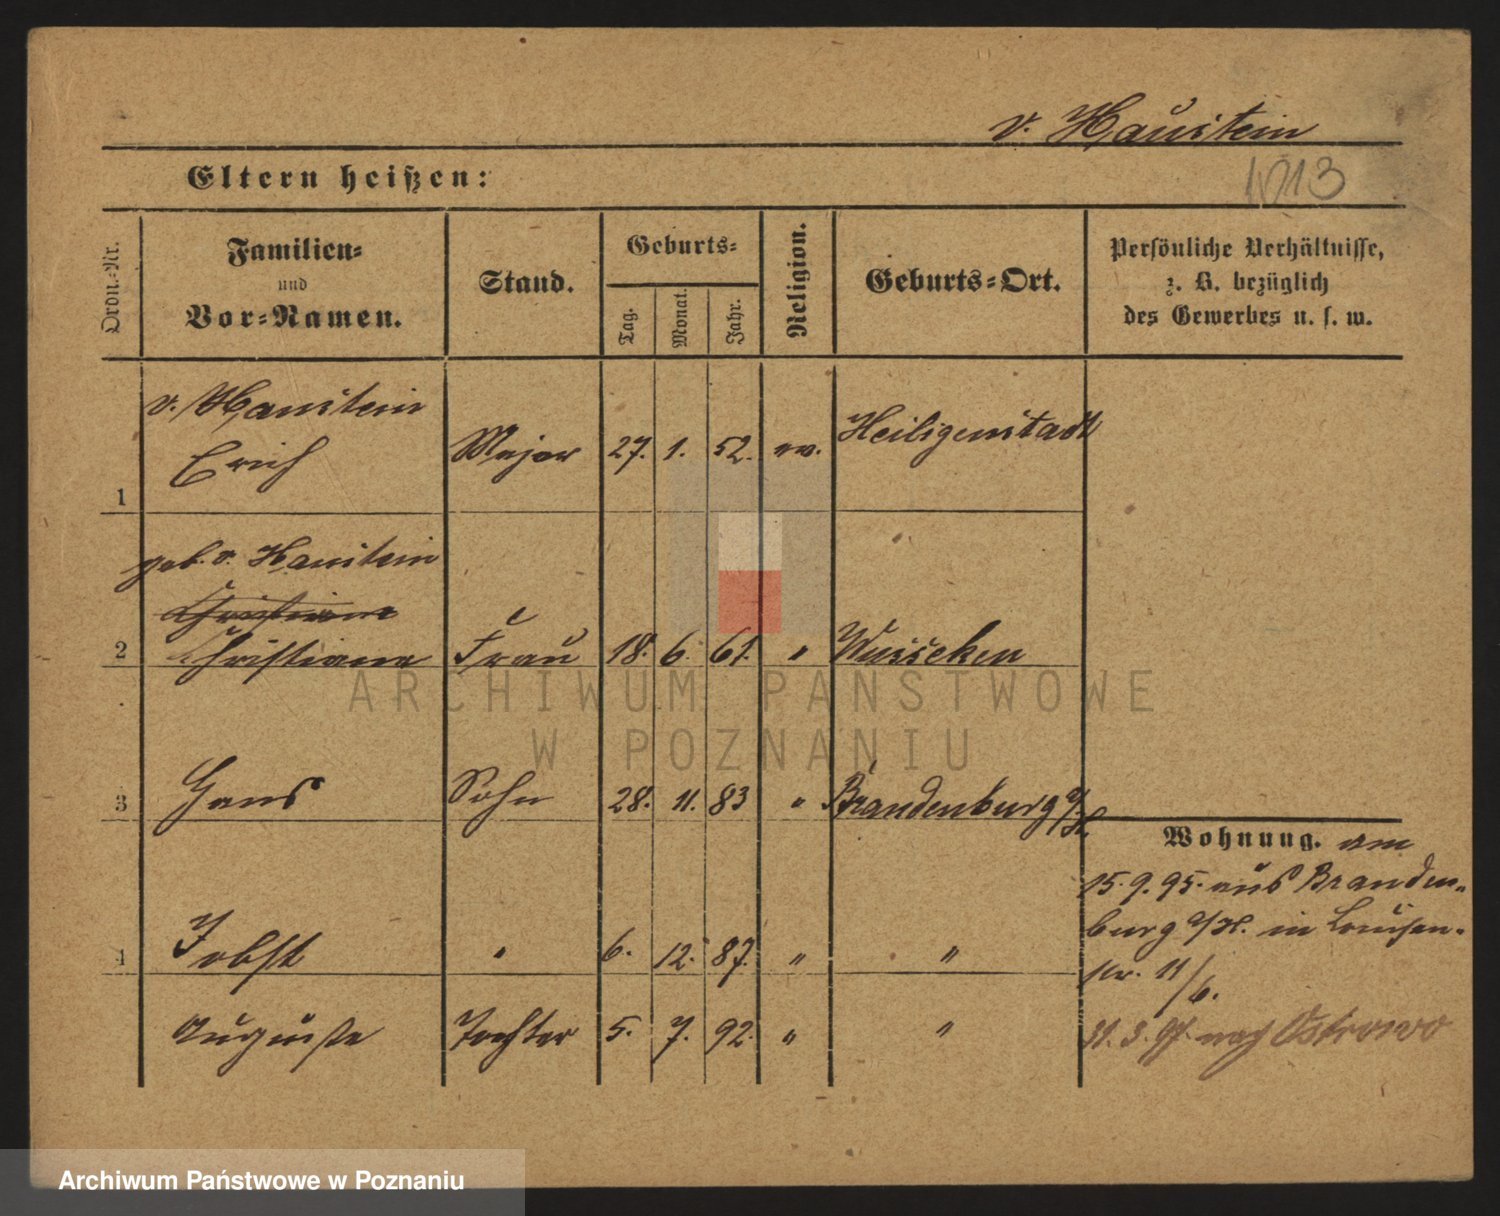 v. Hanstein
Eltern heißen:
1013
Ordn.-Nr.
Familien-
und
Vor-Namen.
Stand.
Geburts-
Tag.
Monat.
Jahr.
Religion.
Geburts-Ort.
Persönliche Verhältnisse,
z. B. bezüglich
des Gewerbes u. s. w.
v. Hanstein
Erich
1 Major 27. 1. 52. ev. Heiligenstadt
geb. v. Hanstein
Christiane
2 Christiane Frau 18. 6. 61. " Wusseken
3 Hans Sohn 28. 11. 83 " Brandenburg a/H.
4 Jobst " 6. 12. 87. " "
Auguste Tochter 5. 7. 92. " "
Wohnung. am
15. 9. 95. aus Branden-
burg a/H. in Louisen-
str. 11/6.
31. 3. 97. nach Ostrowo
ARCHIWUM PAŃSTWOWE
W POZNANIU
Archiwum Państwowe w Poznaniu